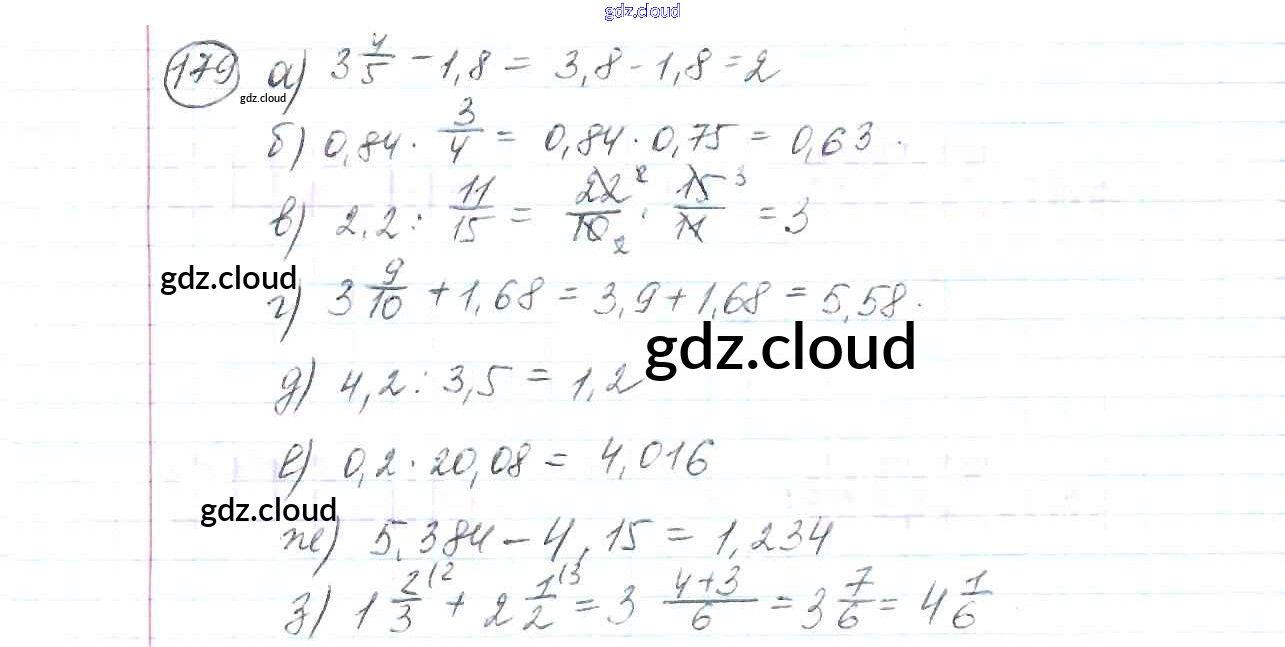 gdz.cloud
179 а) 3 4/5 - 1,8 = 3,8 - 1,8 = 2
gdz.cloud
б) 0,84 · 3/4 = 0,84 · 0,75 = 0,63.
в) 2,2 : 11/15 = 22 2/10 2 · 15 3/11 = 3
gdz.cloud
г) 3 9/10 + 1,68 = 3,9 + 1,68 = 5,58.
gdz.cloud
д) 4,2 : 3,5 = 1,2
е) 0,2 · 20,08 = 4,016
gdz.cloud
ж) 5,384 - 4,15 = 1,234
з) 1 2/3 (2 + 2 1/2 (3 = 3 4+3/6 = 3 7/6 = 4 1/6